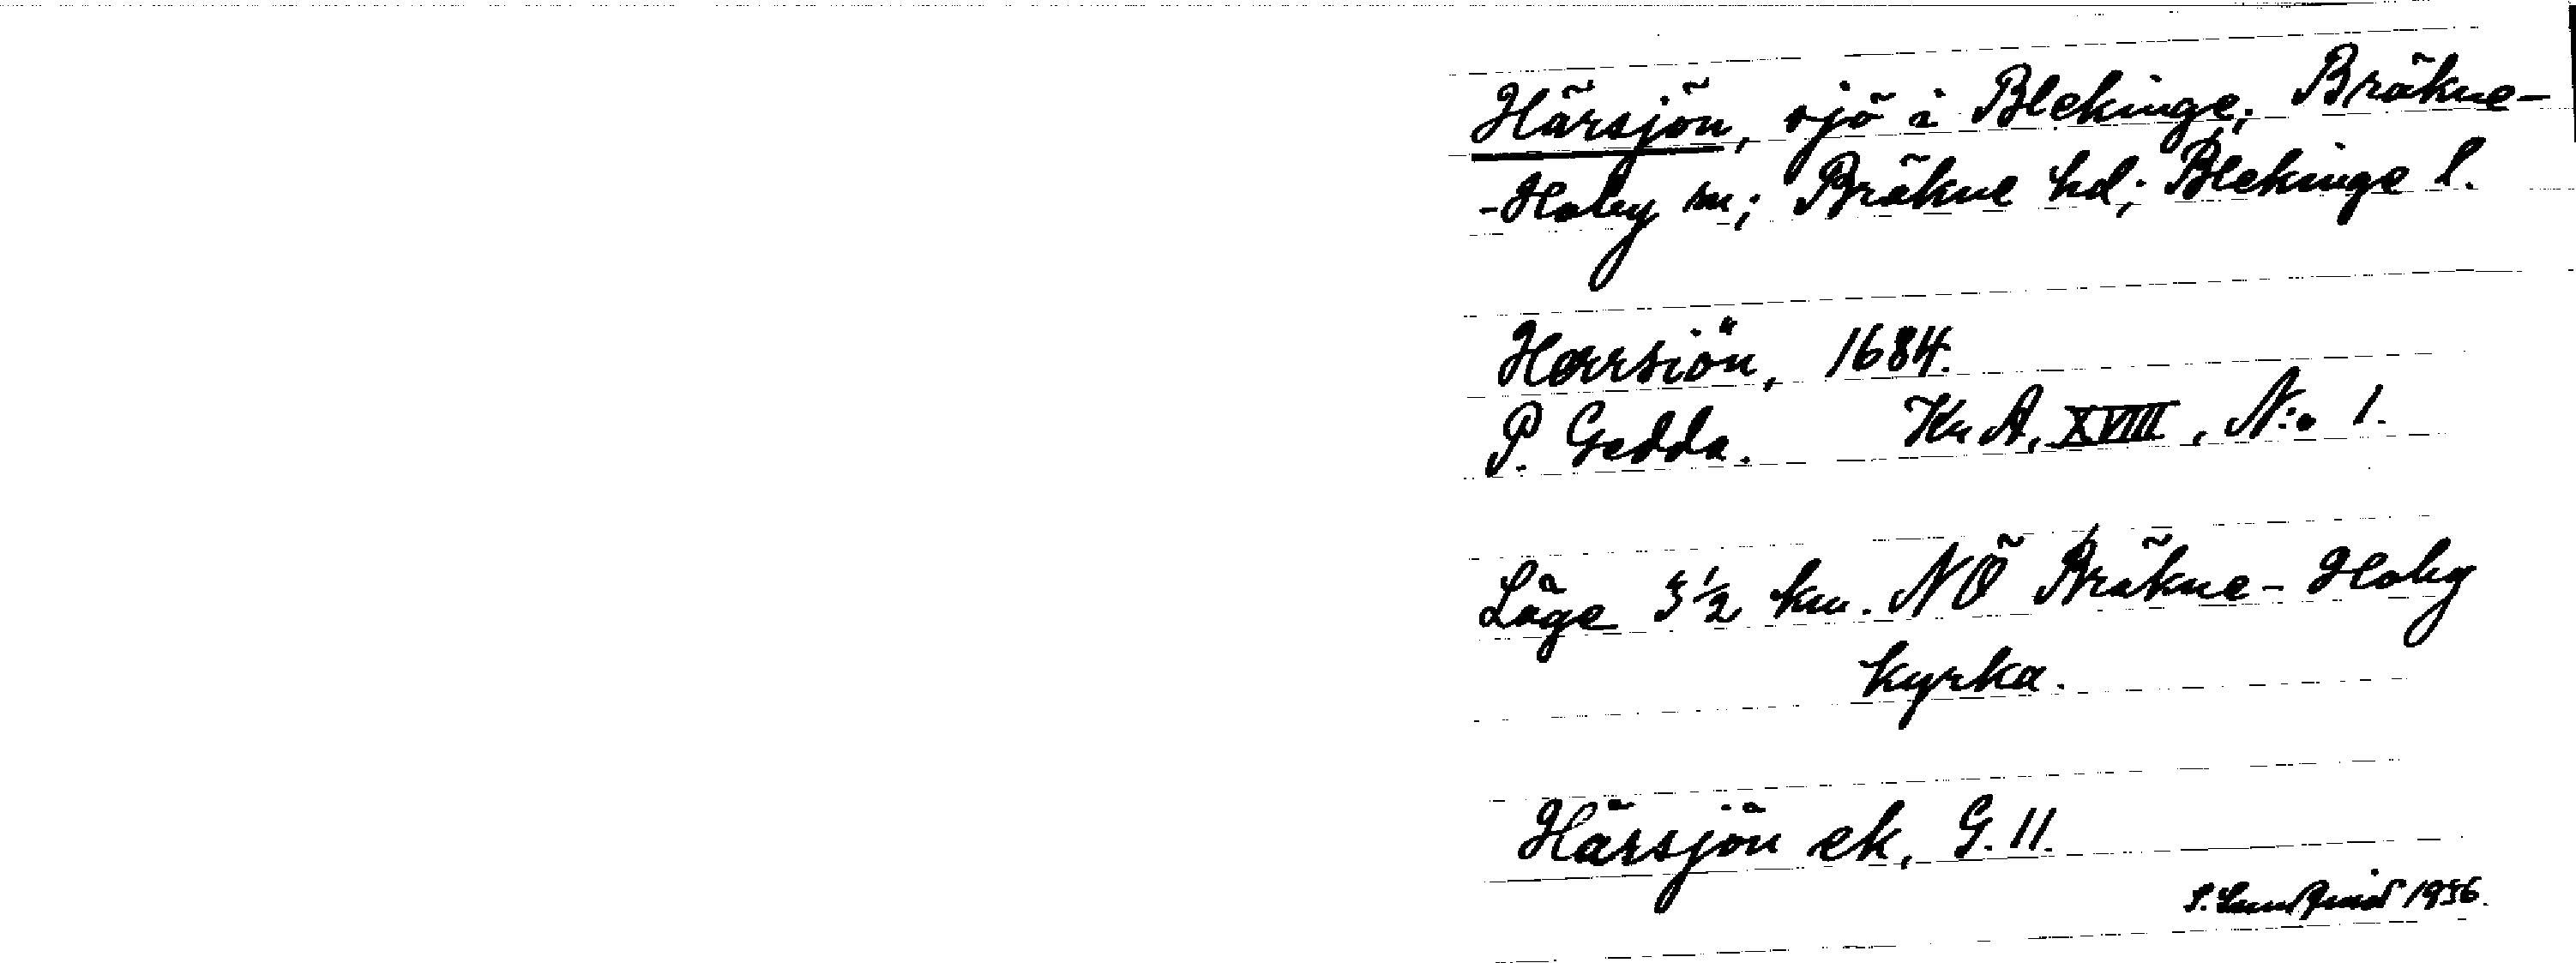 Härsjön, sjö i Blekinge; Bräkne-
-Hoby sn; Bräkne hd; Blekinge l.
Hærsiön, 1684.
P. Gedda. Kr A, XVIII, N:o 1.
Läge 3½ km. NÖ Bräkne-Hoby
kyrka.
Härsjön ek, G. 11.
S. Lundquist 1956.